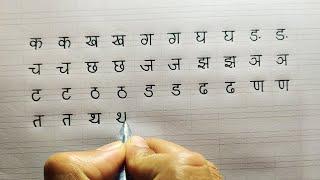 क क ख ख ग ग घ घ ङ ङ
च च छ छ ज ज झ झ ञ ञ
ट ट ठ ठ ड ड ढ ढ ण ण
त त थ थ